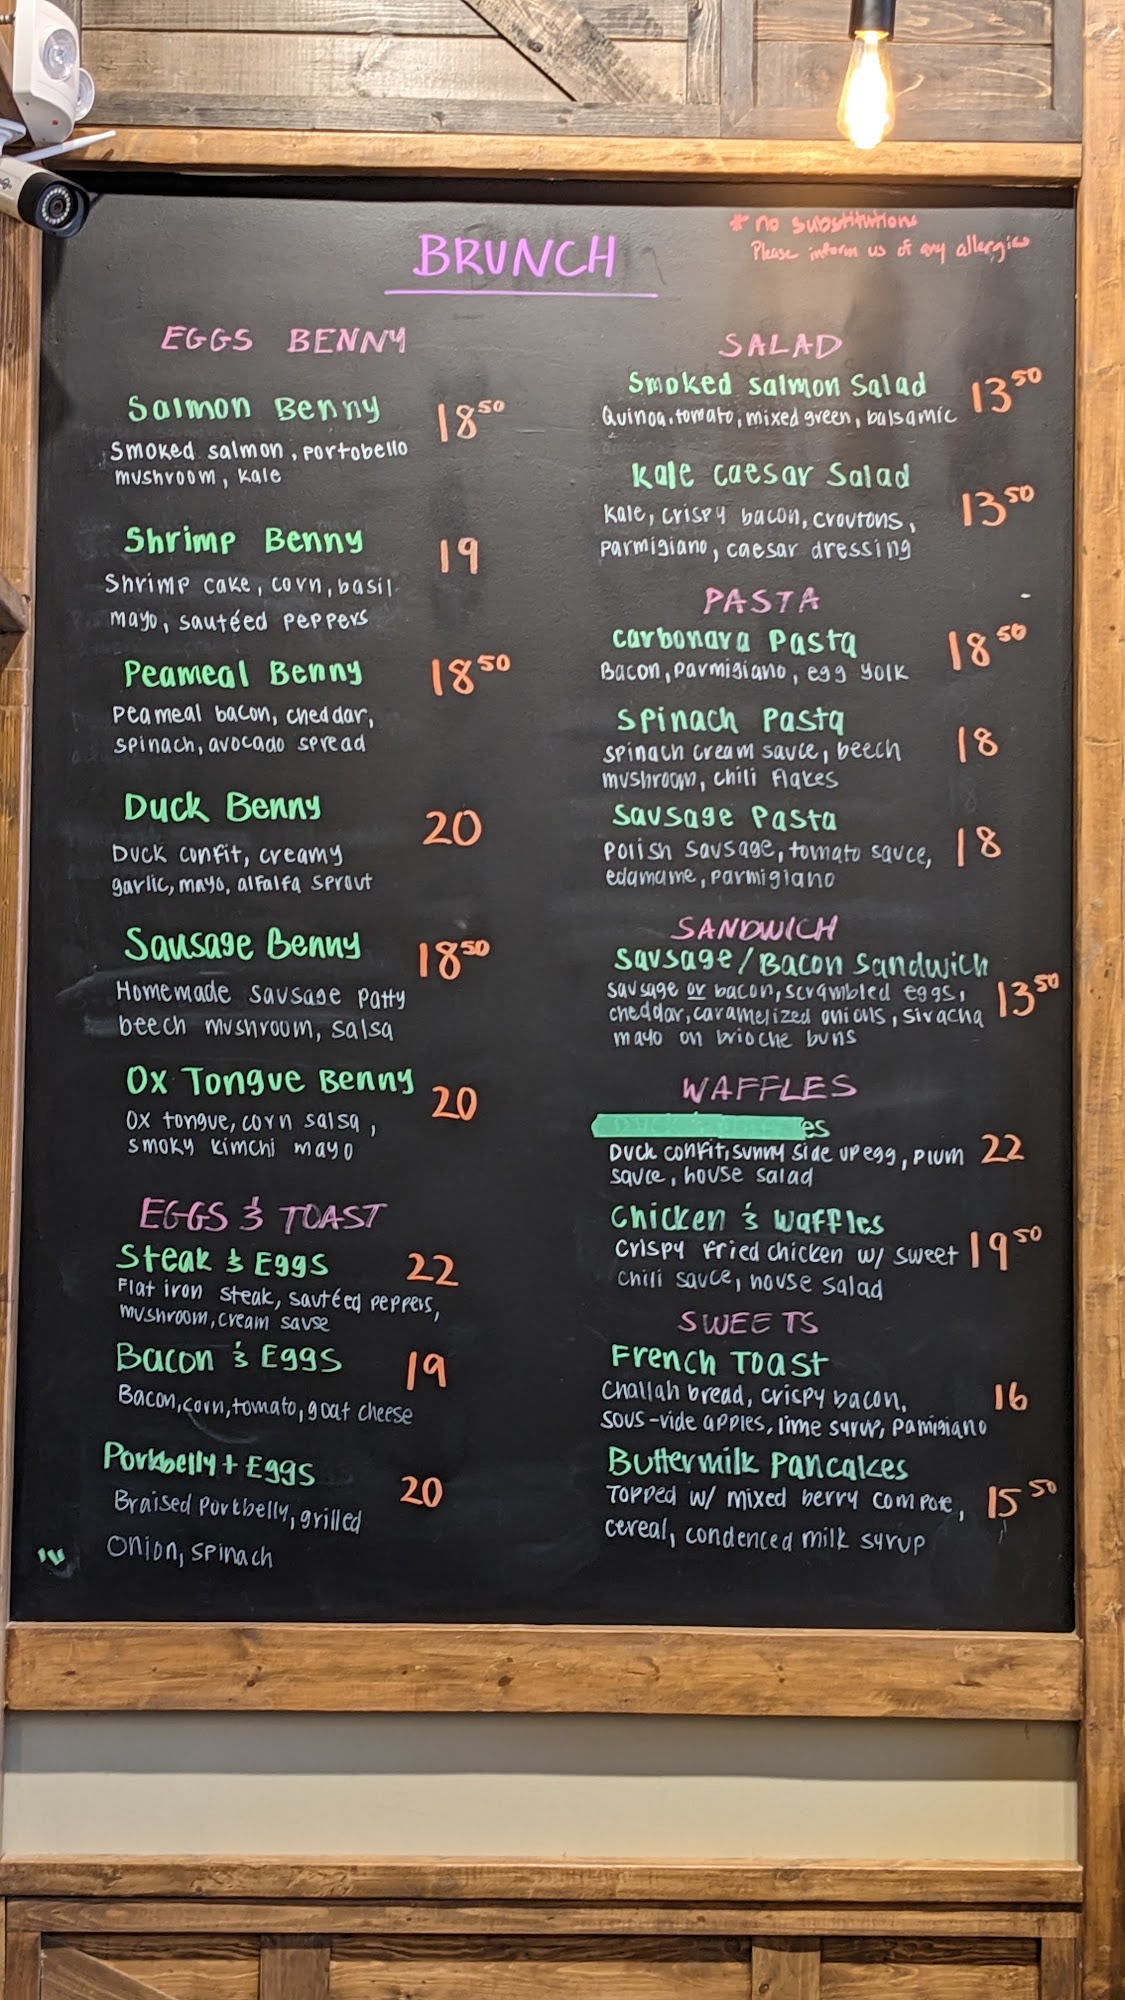 * no substitutions
Please inform us of any allergies
BRUNCH
EGGS BENNY
Salmon Benny 18 50
Smoked salmon, portobello
mushroom, kale
Shrimp Benny 19
Shrimp cake, corn, basil
mayo, sautéed peppers
Peameal Benny 18 50
Peameal bacon, cheddar,
spinach, avocado spread
Duck Benny 20
Duck confit, creamy
garlic, mayo, alfalfa sprout
Sausage Benny 18 50
Homemade sausage patty
beech mushroom, salsa
Ox Tongue Benny 20
Ox tongue, corn salsa,
smoky kimchi mayo
EGGS & TOAST
Steak & Eggs 22
Flat iron steak, sautéed peppers,
mushroom, cream sause
Bacon & Eggs 19
Bacon, corn, tomato, goat cheese
Porkbelly + Eggs 20
Braised porkbelly, grilled
onion, spinach
SALAD
Smoked salmon Salad 13 50
Quinoa, tomato, mixed green, balsamic
Kale caesar Salad 13 50
Kale, crispy bacon, croutons,
parmigiano, caesar dressing
PASTA
Carbonara Pasta 18 50
Bacon, parmigiano, egg yolk
Spinach Pasta 18
spinach cream sauce, beech
mushroom, chili flakes
Sausage Pasta 18
Polish sausage, tomato sauce,
edamame, parmigiano
SANDWICH
Sausage/Bacon Sandwich 13 50
sausage or bacon, scrambled eggs,
cheddar, caramelized onions, siracha
mayo on brioche buns
WAFFLES
es
Duck confit, sunny side up egg, plum 22
sauce, house salad
Chicken & Waffles 19 50
crispy fried chicken w/ sweet
chili sauce, house salad
SWEETS
French Toast 16
challah bread, crispy bacon,
sous-vide apples, lime syrup, pamigiano
Buttermilk Pancakes 15 50
Topped w/ mixed berry compote,
cereal, condenced milk syrup